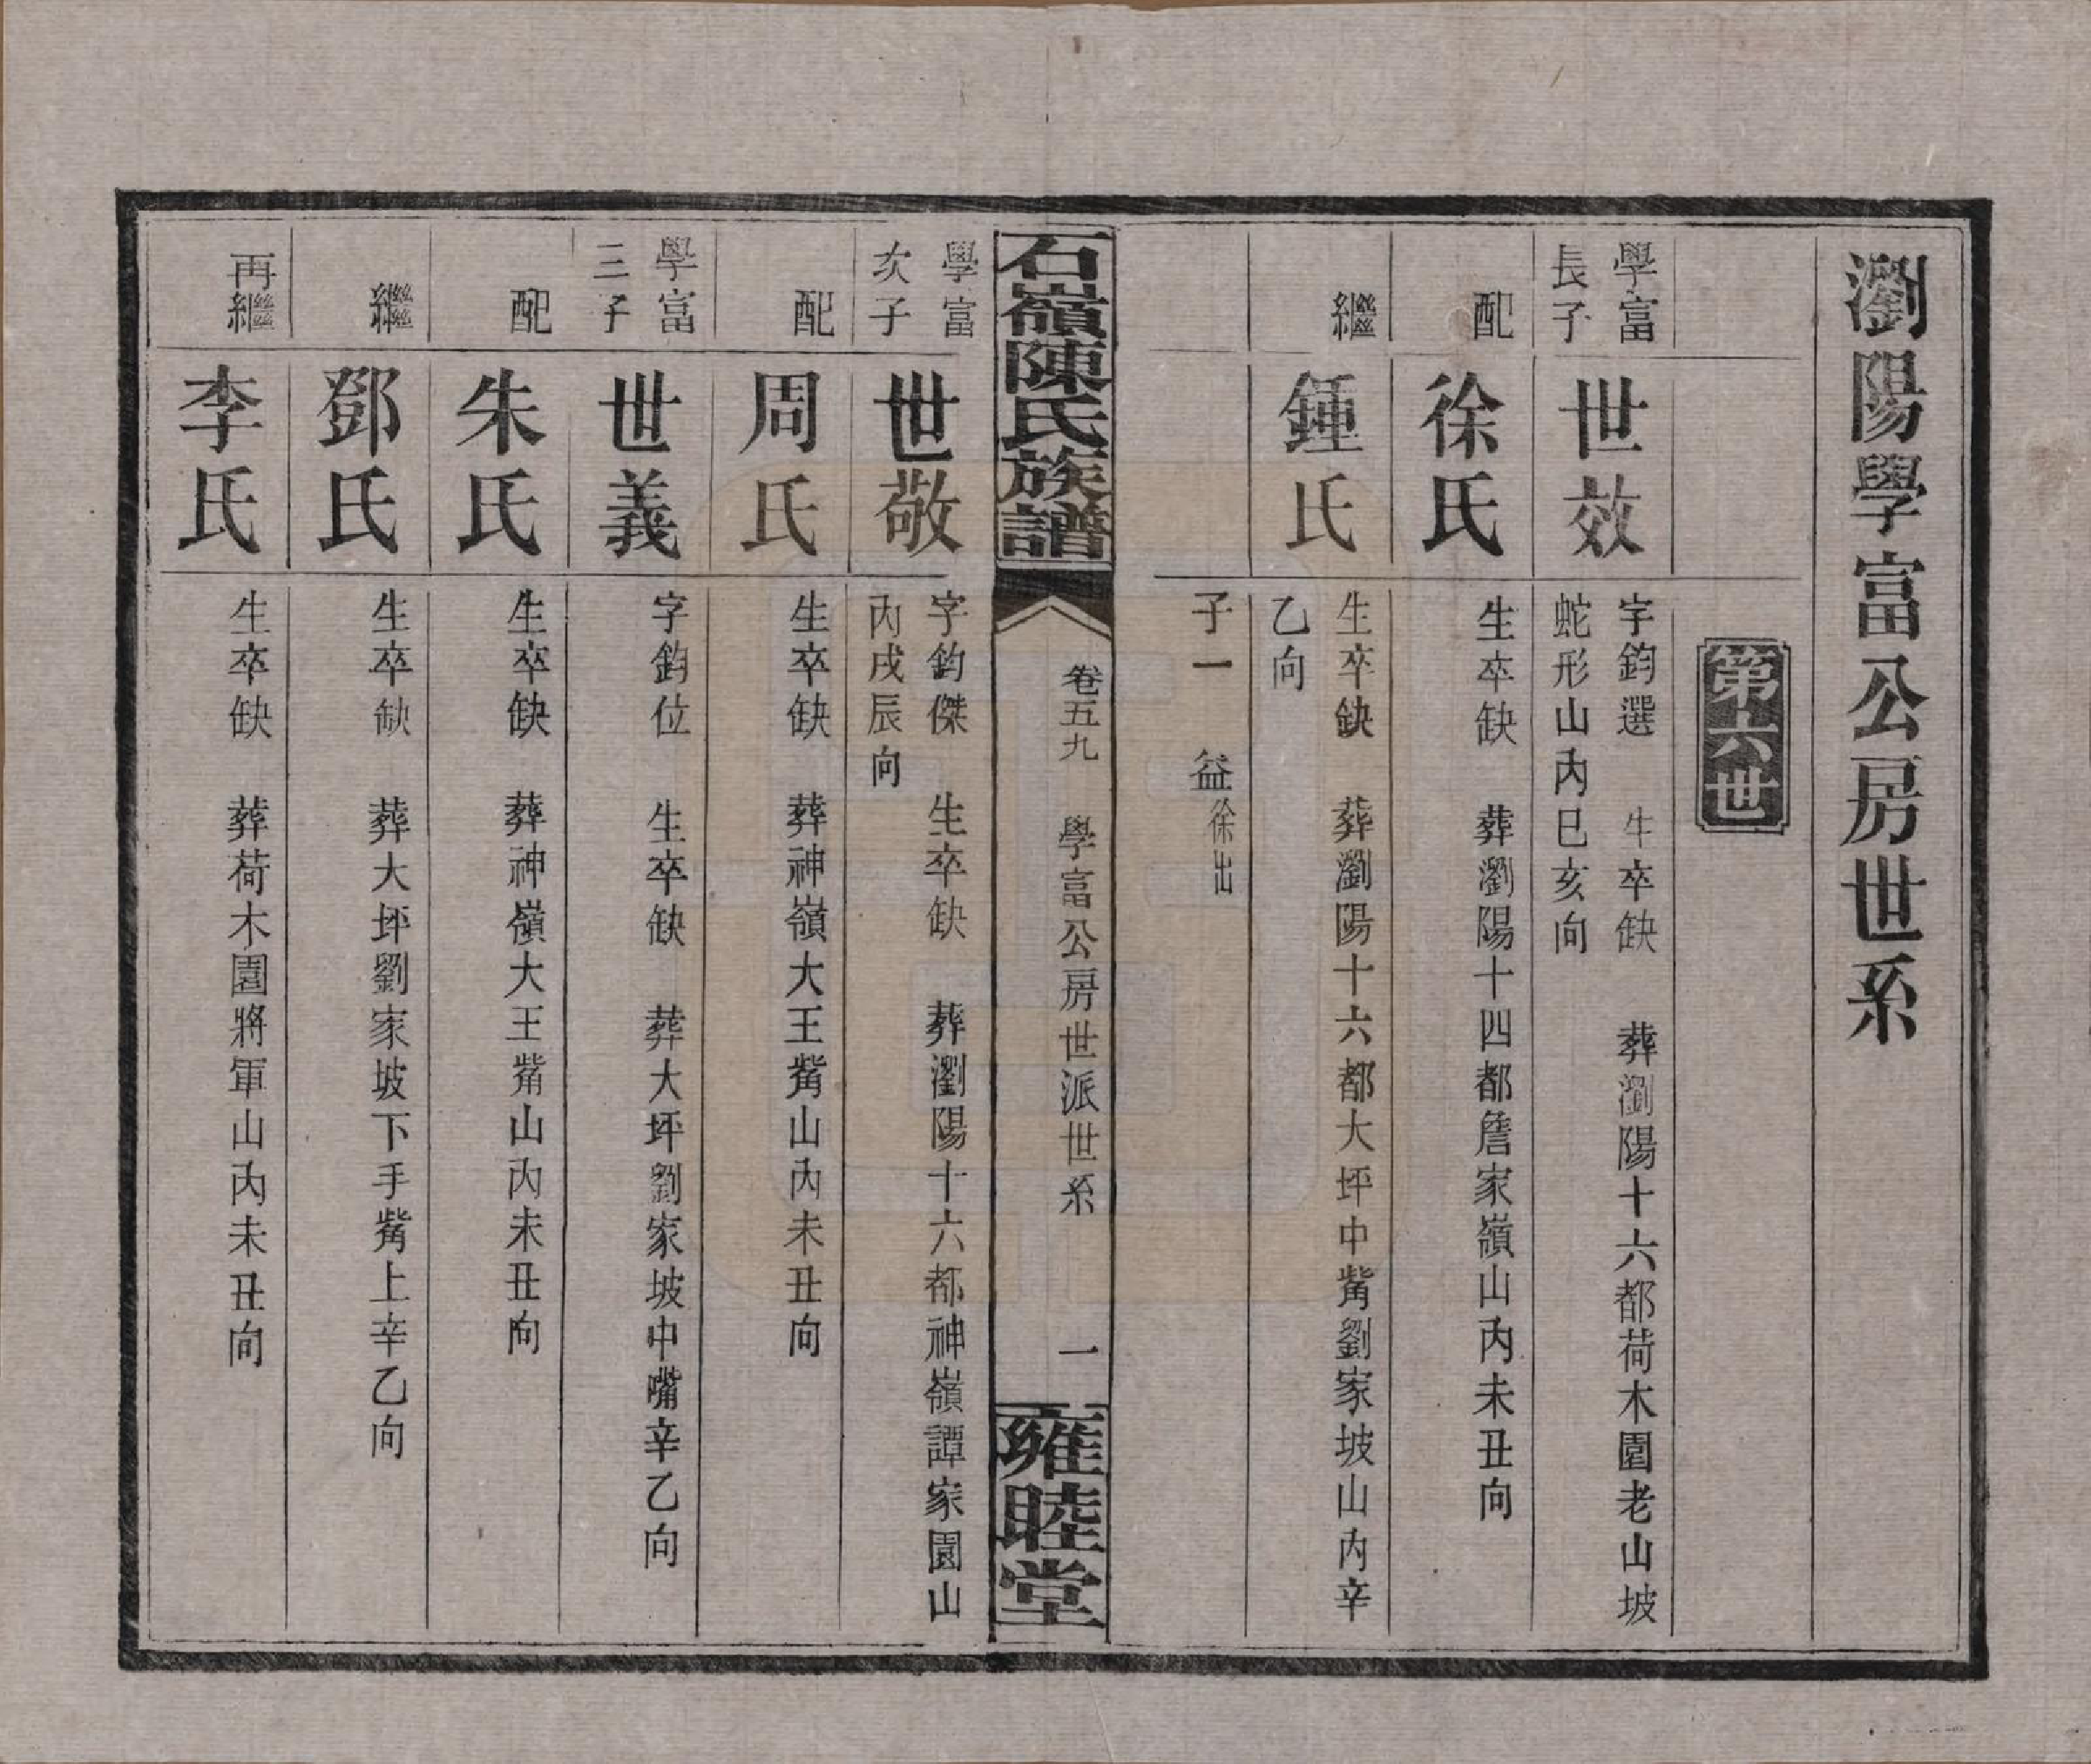 瀏陽學富公房世系
第六世
學富
長子
世效
字鈞選 生卒缺 葬瀏陽十六都荷木園老山坡
蛇形山內巳亥向
配
徐氏
生卒缺 葬瀏陽十四都詹家嶺山內未丑向
繼
鍾氏
生卒缺 葬瀏陽十六都大坪中觜劉家坡山內辛
乙向
子一 益徐出
石嶺陳氏族譜
卷五九 學富公房世派世系 一
雍睦堂
學富
次子
世敬
字鈞傑 生卒缺 葬瀏陽十六都神嶺譚家園山
內戌辰向
配
周氏
生卒缺 葬神嶺大王觜山內未丑向
學富
三子
世義
字鈞位 生卒缺 葬大坪劉家坡中嘴辛乙向
配
朱氏
生卒缺 葬神嶺大王觜山內未丑向
繼
鄧氏
生卒缺 葬大坪劉家坡下手觜上辛乙向
再繼
李氏
生卒缺 葬荷木園將軍山內未丑向